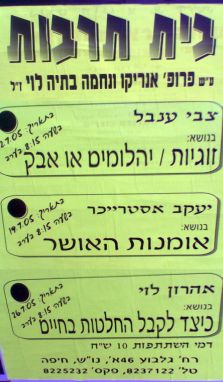 בית תרבות
ע״ש פרופ׳ אנריקו ונחמה בתיה לוי ז״ל
צבי ענבל
בנושא:
זוגיות / יהלומים או אבק
בתאריך: 12.05
בשעה 8:15 בערב
יעקב אסטרייכר
בנושא:
אומנות האושר
בתאריך: 19.05
בשעה 8:15 בערב
אהרון לוי
בנושא:
כיצד לקבל החלטות בחיים
בתאריך: 26.05
בשעה 8:15 בערב
דמי השתתפות 10 ש״ח
רח׳ גלבוע 46א׳, נו״ש, חיפה
טל׳ 8237122, פקס׳ 8225232